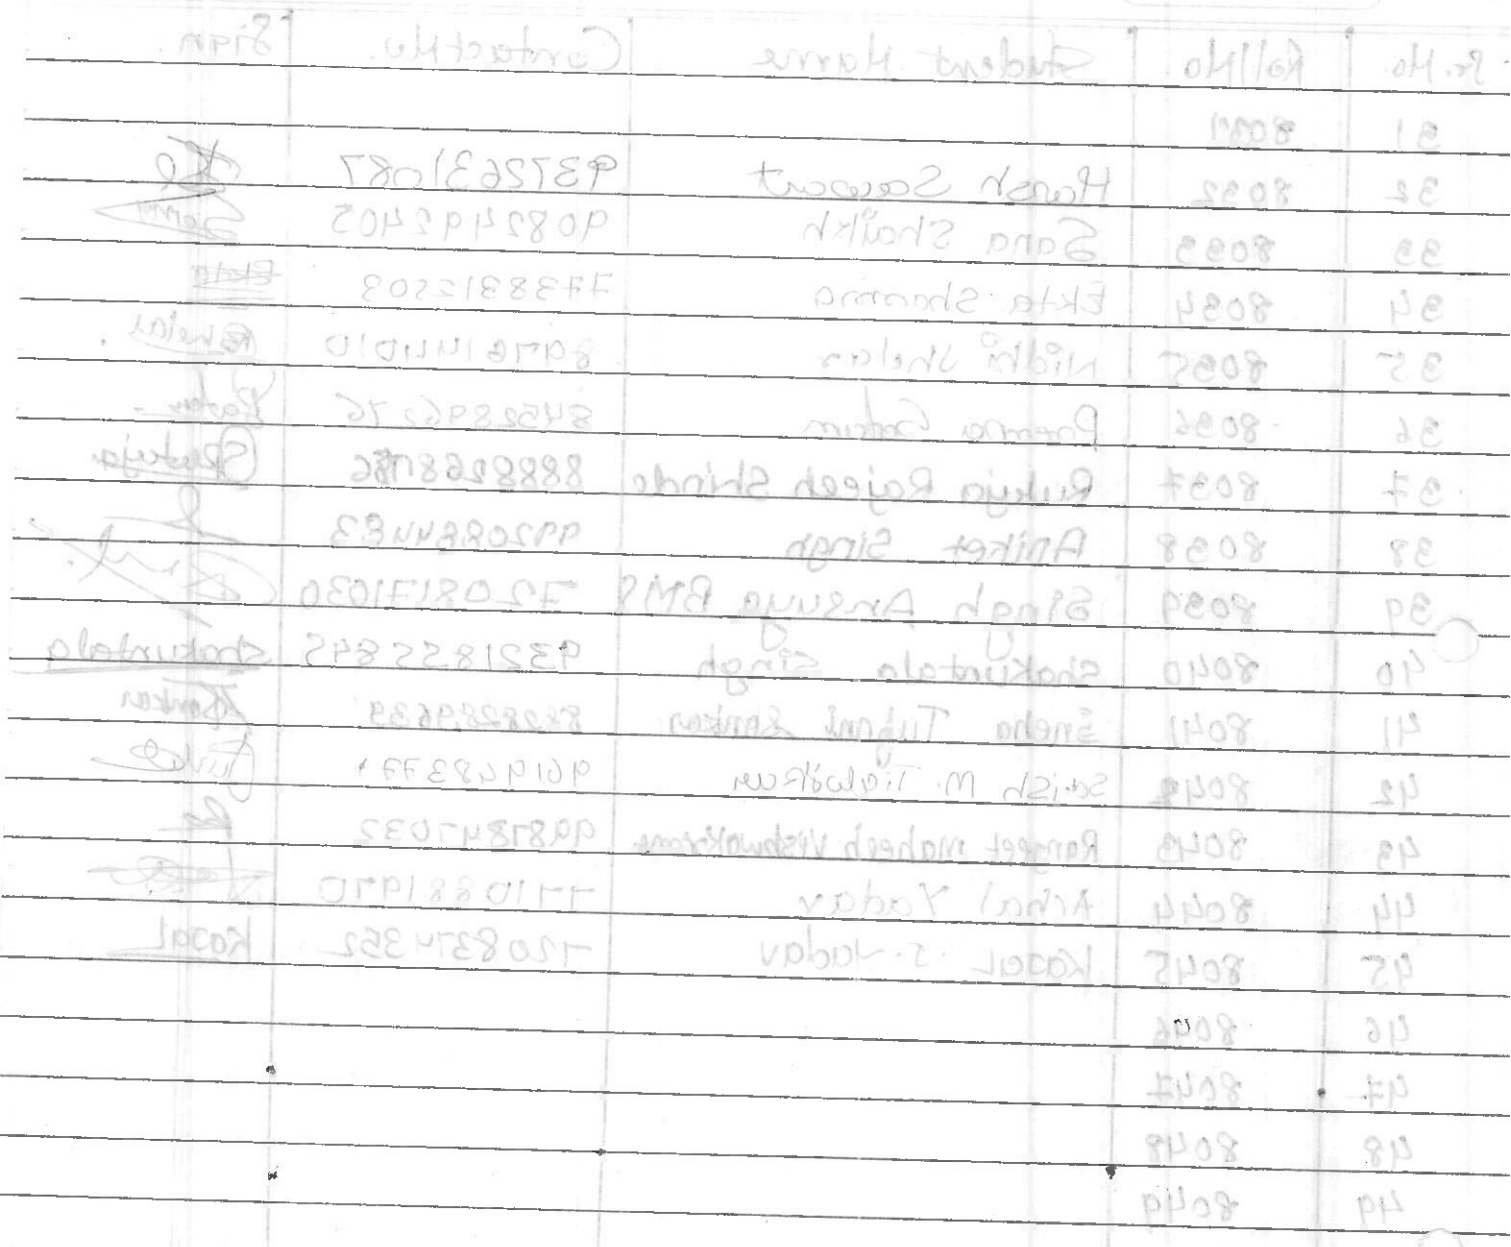 Sr. No. Roll No. Student Name Contact No. Sign
31 8031
32 8032 Harsh Sawant 9372631087
33 8033 Sana Shaikh 9082492405 Sana
34 8034 Ekta Sharma 7738312503 Ekta
35 8035 Nidhi Shelar Shelar
36 8036 8452896276
37 8037 Rutuja Rajesh Shinde Rutuja
38 8038 Aniket Singh
39 8039 Singh Ansuya BMS 7208171030
40 8040 Shakuntala Singh 9321855845 Shakuntala
41 8041 Sneha
42 8042 M.
43 8043 Ranjeet Mahesh Vishwakarma 9987847032
44 8044 Yadav 7710881970
45 8045 Kajal S. Yadav 7208374352 Kajal
46 8046
47 8047
48 8048
49 8049